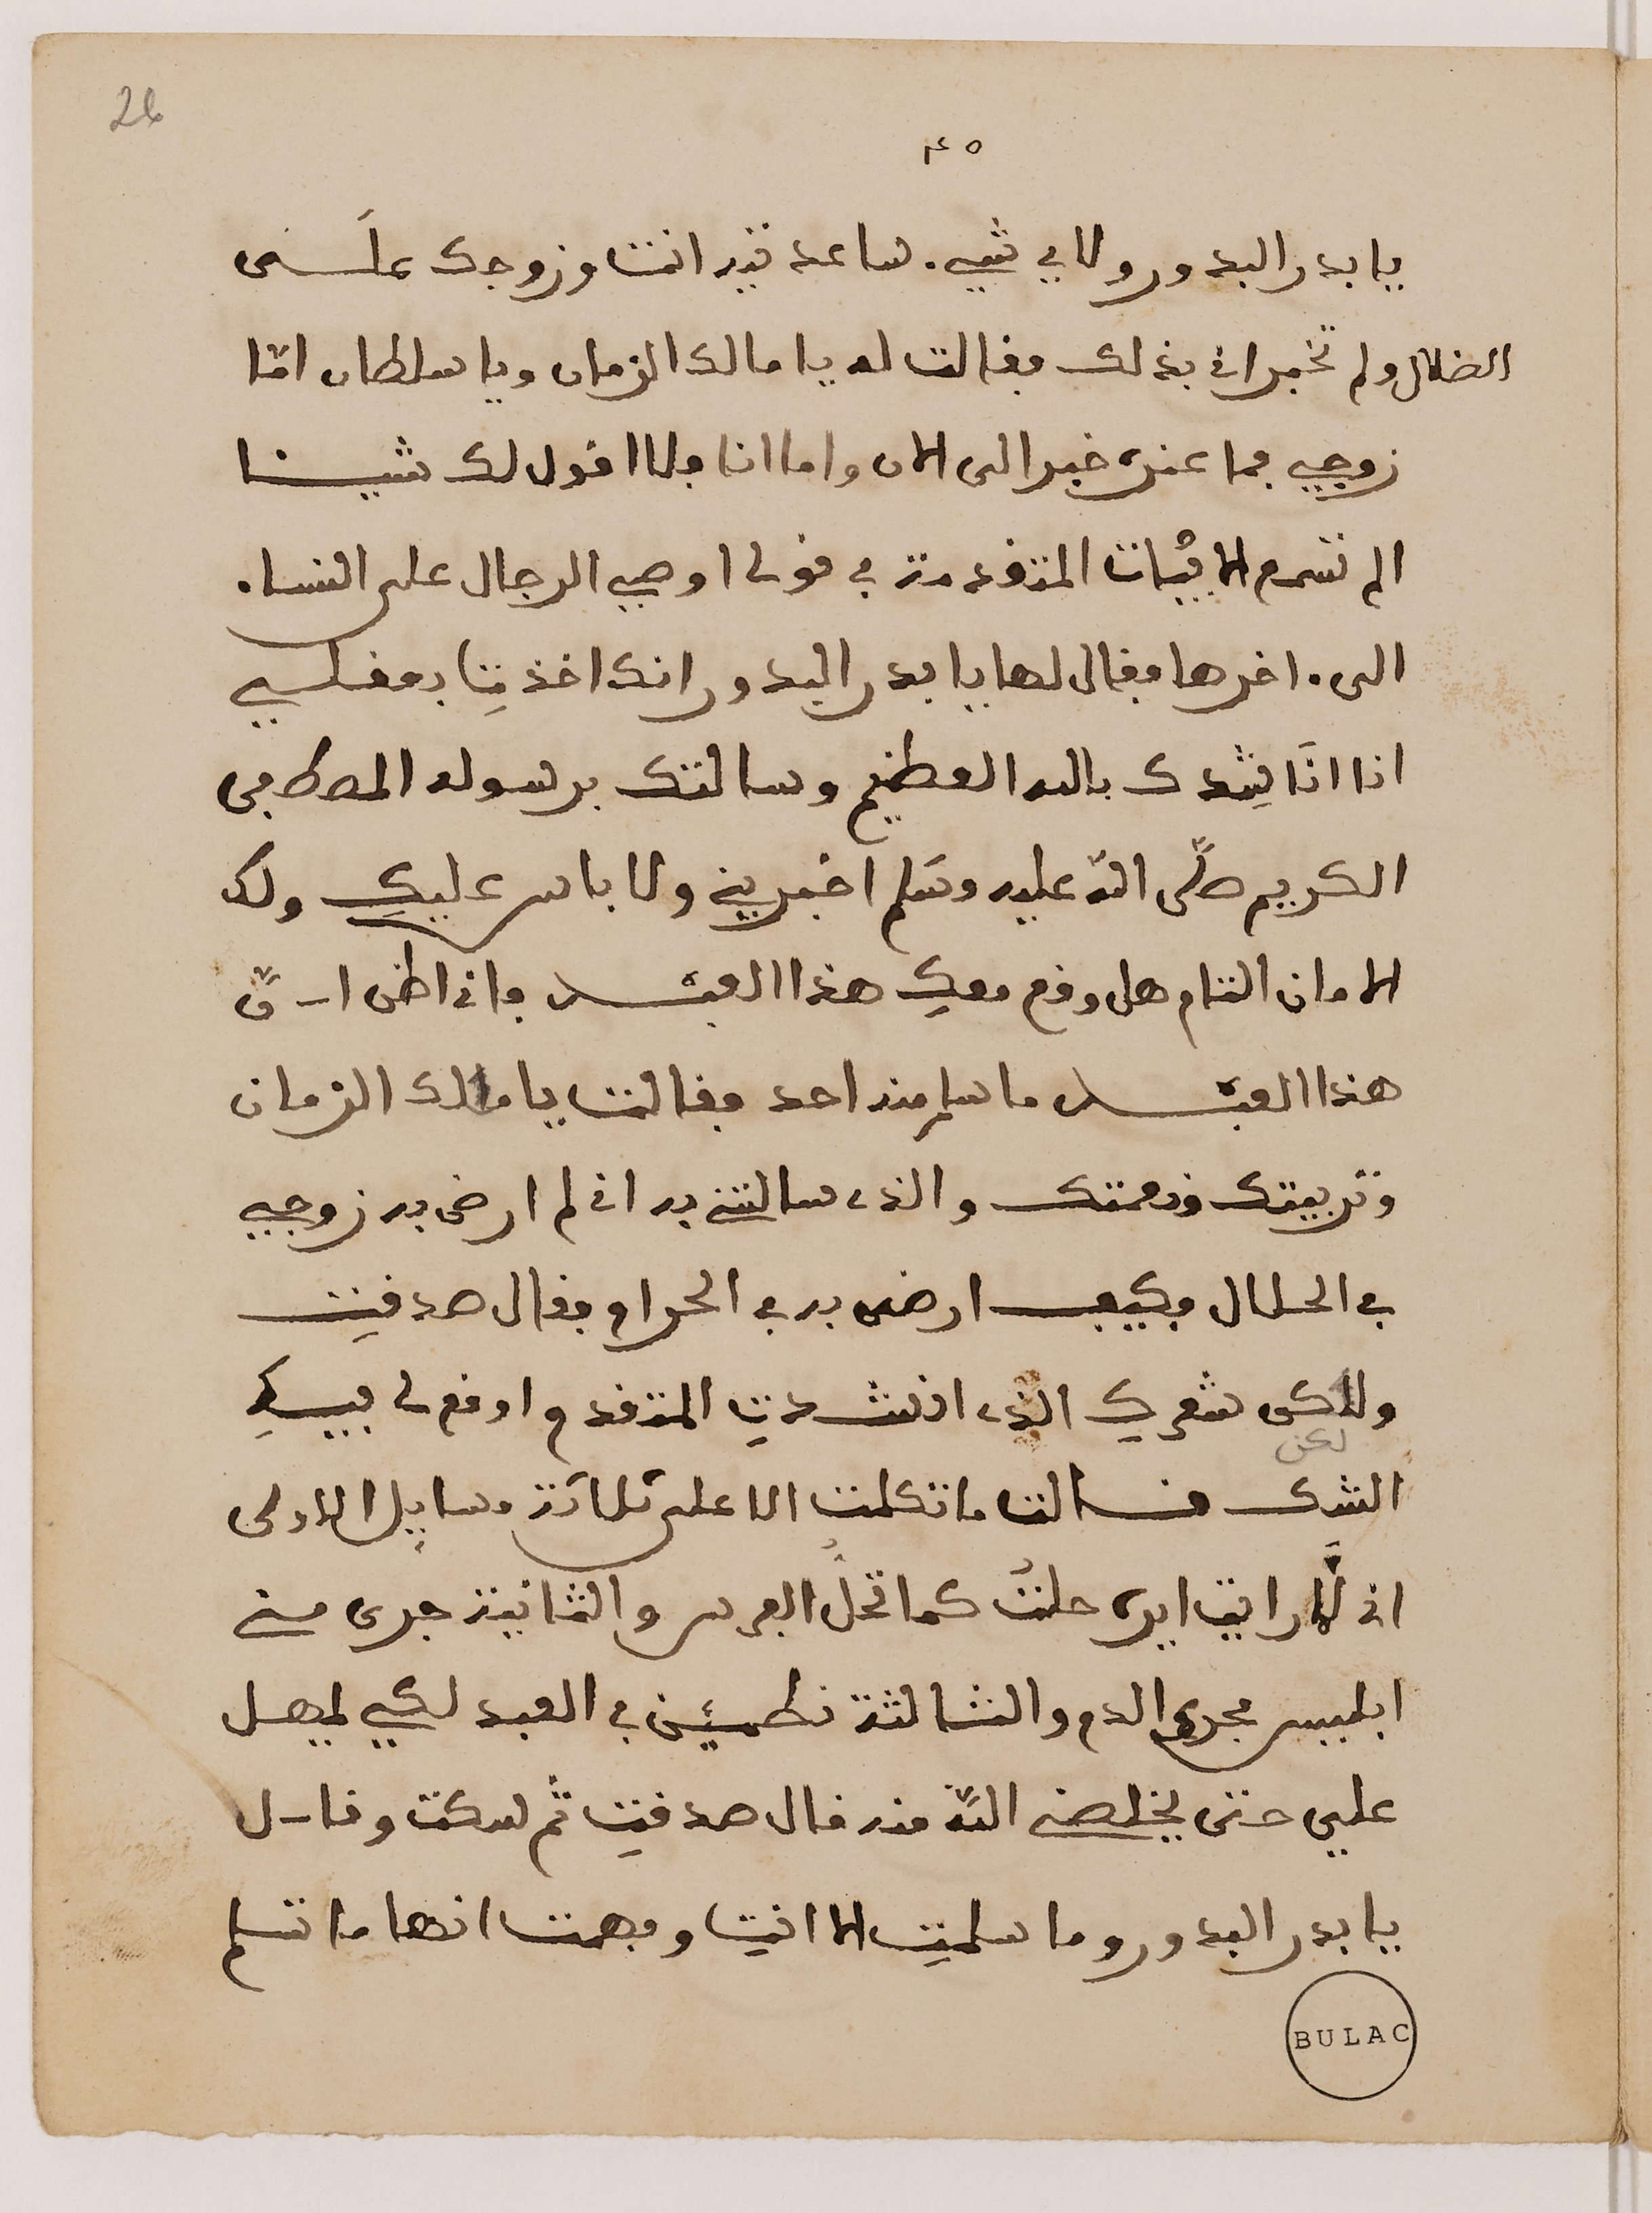 26
٤٥
يا بدر البدور ولاي شيء ساعدتيه انت وزوجك على
الضلال ولم تخبراني بذلك فقالت له يا مالك الزمان ويا سلطان امّا
زوجي فما عنده خبر الى الان واما انا فلا اقول لك شيئا
الم تسمع الابيات المتقدمة في قولي اوصي الرجال على النساء
الى اخرها فقال لها يا بدر البدور انك اخذتِ بعقلي
اذا انَا نِشدك بالله العظيم وسالتك برسوله المصطفى
الكريم صلّى الله عليه وسَلم اخبريني ولا باس عليكِ ولك
الامان التام هل وقع معكِ هذا العبد فاني اظن انّ
هذا العبد ما سلم منه احد فقالت يا مالك الزمان
وتربيتك ونعمتك والذي سالتني به اني لم ارض به زوجي
في الحلال فكيف ارضى به في الحرام فقال صدقتِ
ولاكن شعركِ الذي انشدتِ المتقدم اوقع لي فيكِ
لكن
الشك فسالت ما تكلمت الا على ثلاثة مسايل الاولى
اني لمَّا رايت ايره حلتُ كما تحلُّ الفرس والثانية جرى مني
ابليس مجرى الدم والثالثة نطمئن في العبد لكي يمهل
علي حتى يخلصني الله منه قال صدقتِ ثم سكت وقال
يا بدر البدور وما سلمتِ الا انتِ وفهمت انها ما تسلم
BULAC